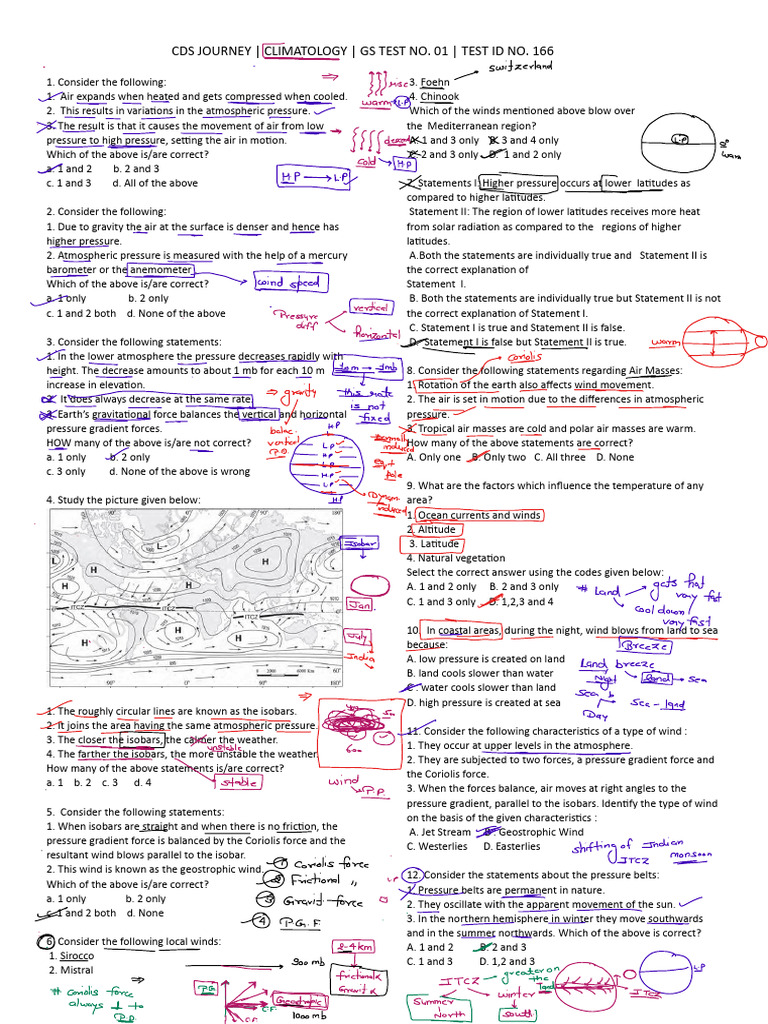 CDS JOURNEY | CLIMATOLOGY | GS TEST NO. 01 | TEST ID NO. 166
1. Consider the following:
1. Air expands when heated and gets compressed when cooled.
2. This results in variations in the atmospheric pressure.
3. The result is that it causes the movement of air from low
pressure to high pressure, setting the air in motion.
Which of the above is/are correct?
a. 1 and 2 b. 2 and 3
c. 1 and 3 d. All of the above
rise
warm L.P
cold H P
H P → L.P
2. Consider the following:
1. Due to gravity the air at the surface is denser and hence has
higher pressure.
2. Atmospheric pressure is measured with the help of a mercury
barometer or the anemometer
Which of the above is/are correct?
a. 1 only b. 2 only
c. 1 and 2 both d. None of the above
wind speed
Pressure diff
vertical
horizontal
3. Consider the following statements:
1. In the lower atmosphere the pressure decreases rapidly with
height. The decrease amounts to about 1 mb for each 10 m
increase in elevation.
2. It does always decrease at the same rate
3. Earth's gravitational force balances the vertical and horizontal
pressure gradient forces.
HOW many of the above is/are not correct?
a. 1 only b. 2 only
c. 3 only d. None of the above is wrong
10m → 1mb
this rate
is not
fixed
⇒ gravity
vertical
H P
L P
H P
L P
H P
4. Study the picture given below:
Isobar
Jan
July
India
ITCZ
ITCZ
ITCZ
H
H
H
H
H
H
L
1. The roughly circular lines are known as the isobars.
2. It joins the area having the same atmospheric pressure.
3. The closer the isobars, the calmer the weather.
unstable
4. The farther the isobars, the more unstable the weather
How many of the above statements is/are correct?
a. 1 b. 2 c. 3 d. 4
stable
wind
P.P.
5. Consider the following statements:
1. When isobars are straight and when there is no friction, the
pressure gradient force is balanced by the Coriolis force and the
resultant wind blows parallel to the isobar.
2. This wind is known as the geostrophic wind.
Which of the above is/are correct?
a. 1 only b. 2 only
c. 1 and 2 both d. None
1 Coriolis force
2 Frictional "
3 Gravit force
4 P.G.F
6 Consider the following local winds:
1. Sirocco
2. Mistral
2-4km
900 mb
frictional &
Gravit
# Coriolis force
always ⊥ to
P.P.
P.G.
C.F.
C.F.
Geostropic
1000 mb
3. Foehn
switzerland
4. Chinook
Which of the winds mentioned above blow over
the Mediterranean region?
A. 1 and 3 only B. 3 and 4 only
C. 2 and 3 only D. 1 and 2 only
L.P
warm
7. Statements I: Higher pressure occurs at lower latitudes as
compared to higher latitudes.
Statement II: The region of lower latitudes receives more heat
from solar radiation as compared to the regions of higher
latitudes.
A.Both the statements are individually true and Statement II is
the correct explanation of
Statement I.
B. Both the statements are individually true but Statement II is not
the correct explanation of Statement I.
C. Statement I is true and Statement II is false.
D. Statement I is false but Statement II is true.
coriolis
warm
8. Consider the following statements regarding Air Masses:
1. Rotation of the earth also affects wind movement.
2. The air is set in motion due to the differences in atmospheric
pressure.
3. Tropical air masses are cold and polar air masses are warm.
How many of the above statements are correct?
A. Only one B. Only two C. All three D. None
9. What are the factors which influence the temperature of any
area?
1. Ocean currents and winds
2. Altitude
3. Latitude
4. Natural vegetation
Select the correct answer using the codes given below:
A. 1 and 2 only B. 2 and 3 only
C. 1 and 3 only D. 1,2,3 and 4
# Land
gets hot
very fast
cool down
very fast
10. In coastal areas, during the night, wind blows from land to sea
because:
A. low pressure is created on land
B. land cools slower than water
C. water cools slower than land
D. high pressure is created at sea
Breeze
Land breeze
Night
land → sea
Sea
Day
see - land
11. Consider the following characteristics of a type of wind :
1. They occur at upper levels in the atmosphere.
2. They are subjected to two forces, a pressure gradient force and
the Coriolis force.
3. When the forces balance, air moves at right angles to the
pressure gradient, parallel to the isobars. Identify the type of wind
on the basis of the given characteristics :
A. Jet Stream B. Geostrophic Wind
C. Westerlies D. Easterlies
shifting of Indian
ITCZ monsoon
12. Consider the statements about the pressure belts:
1. Pressure belts are permanent in nature.
2. They oscillate with the apparent movement of the sun.
3. In the northern hemisphere in winter they move southwards
and in the summer northwards. Which of the above is correct?
A. 1 and 2 B. 2 and 3
C. 1 and 3 D. 1,2 and 3
ITCZ
greater on
the land
Summer
North
winter
South
ITCZ
L.P